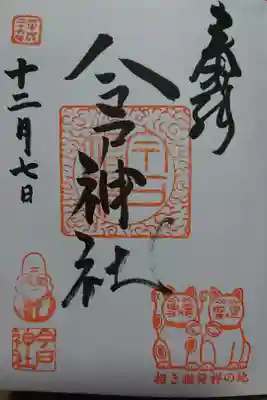 奉拝
今戸神社
十二月七日
平成
二十六年
今戸
今戸
神社
招き猫発祥の地